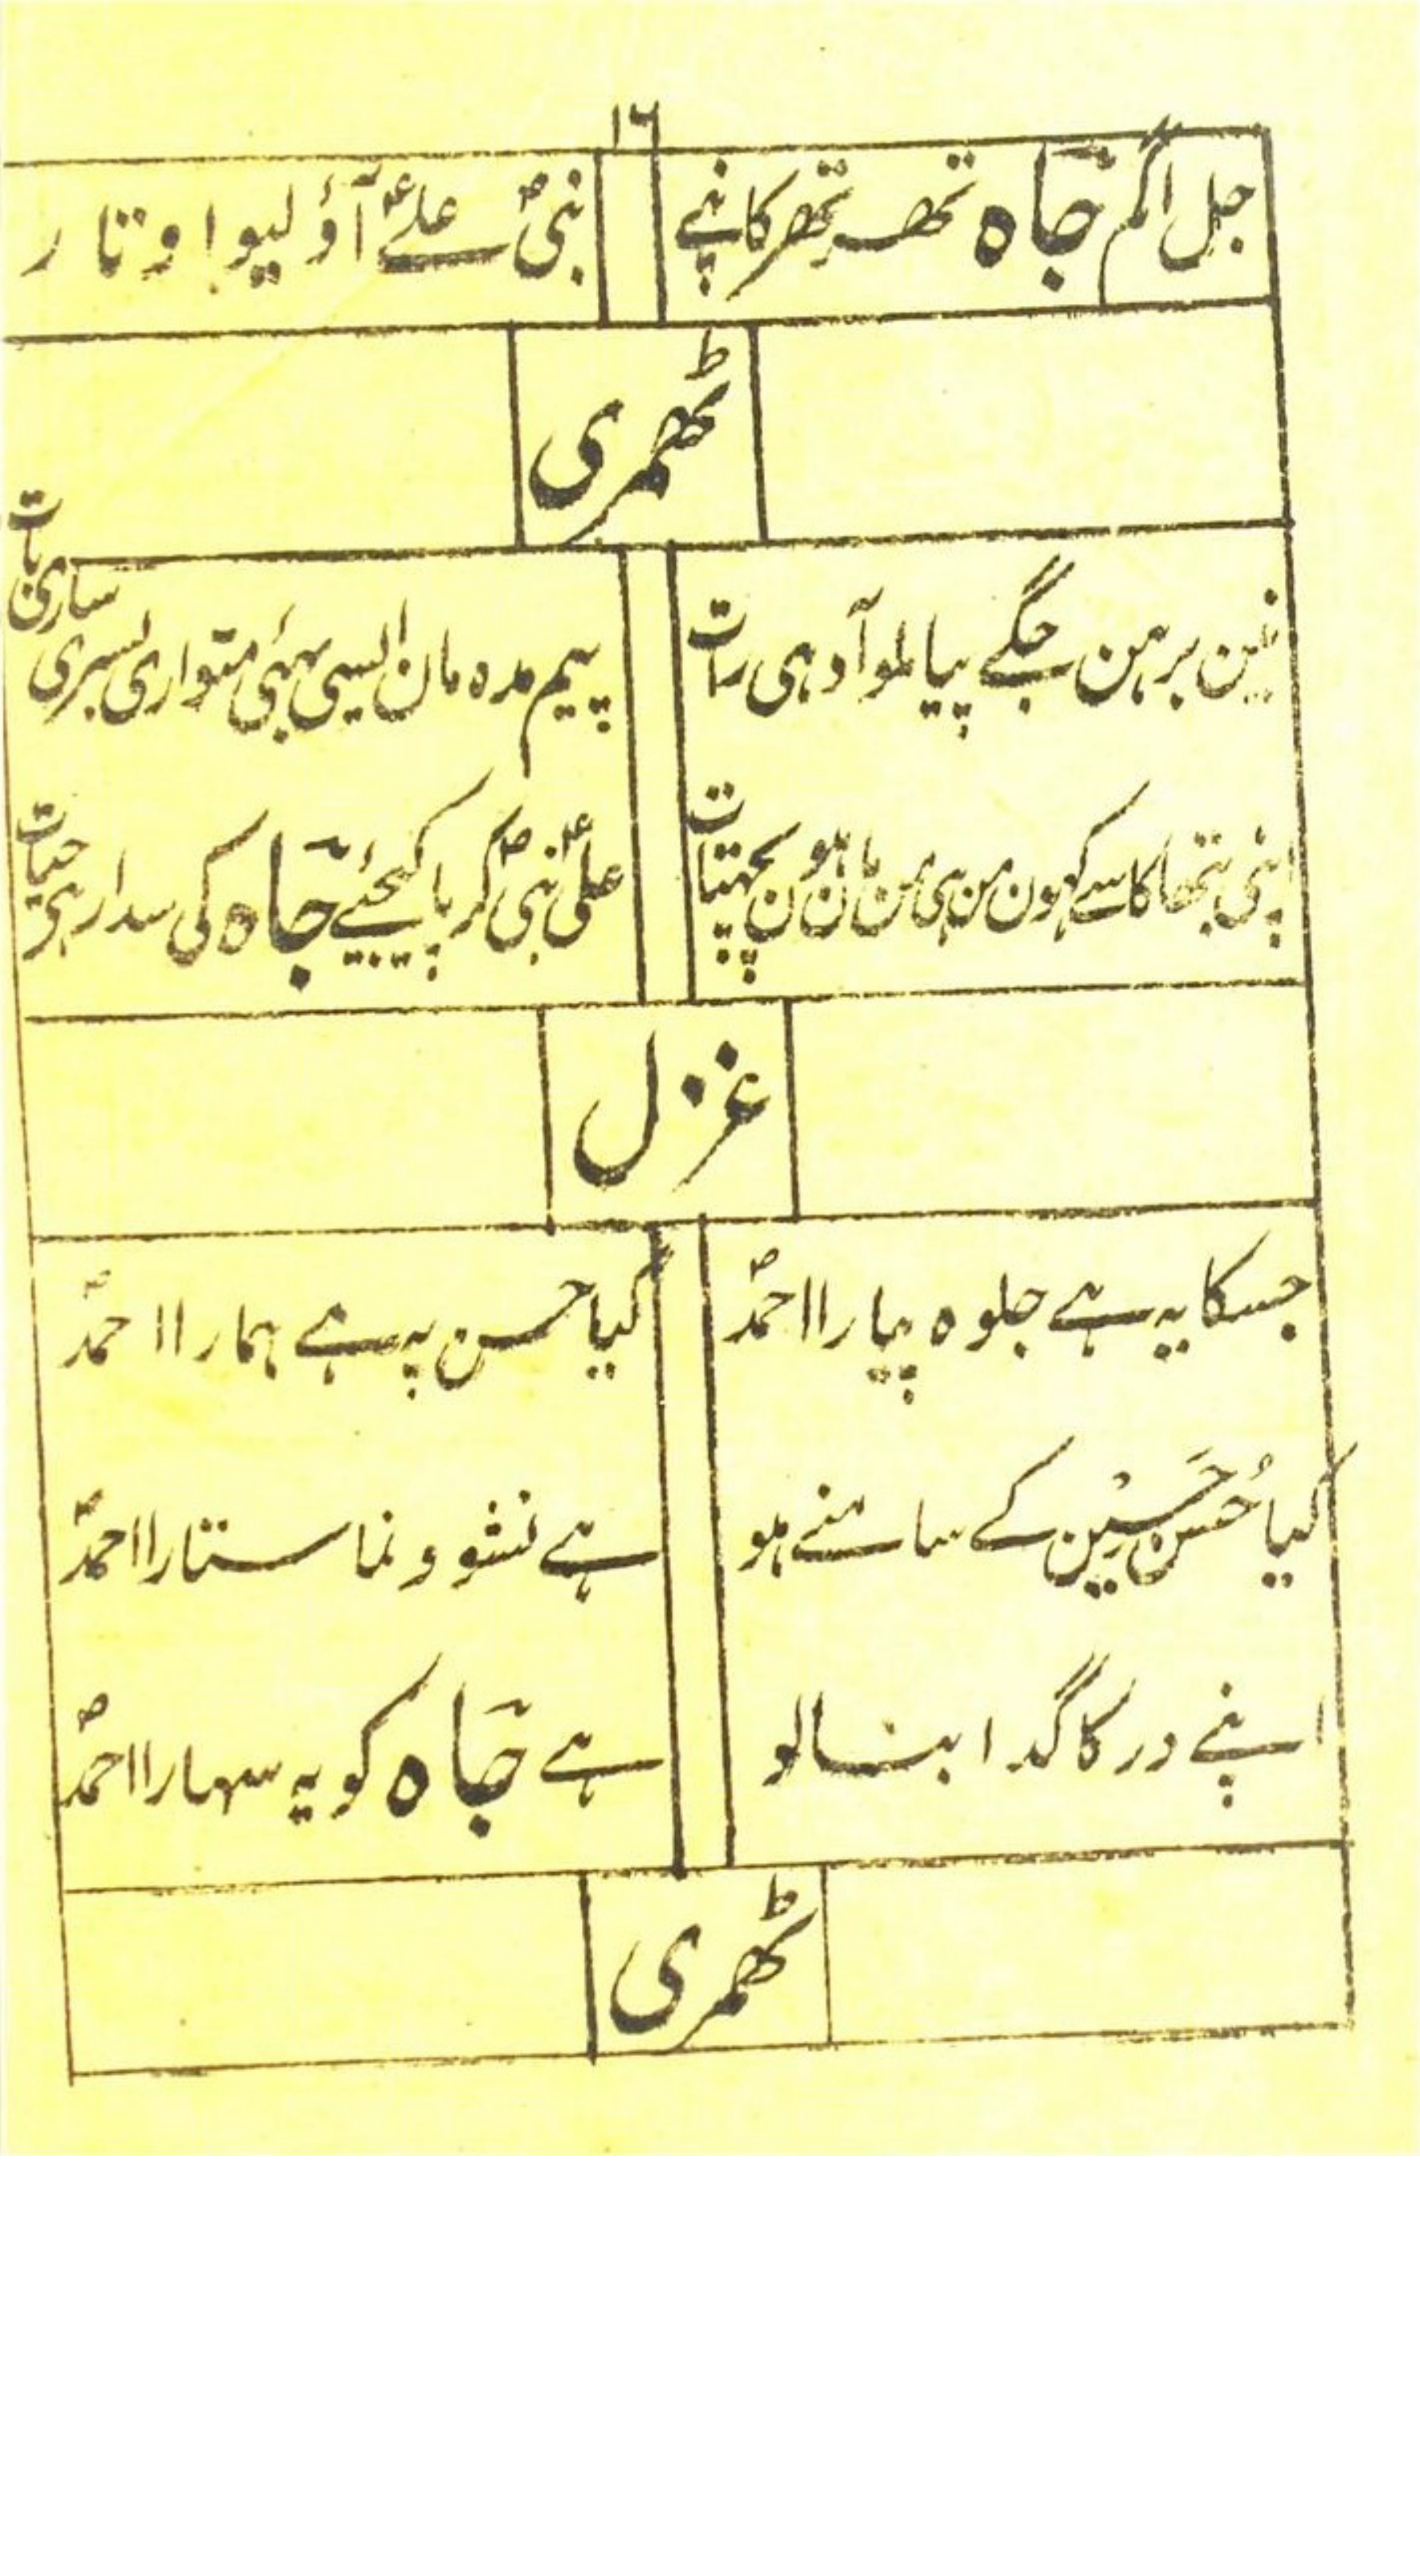 ١٦
جل اگم جاہ تھر تھر کانپے نبیؐ علیؑ سے آؤ لیو اوتار
ٹھمری
نین برہن جگے پیا ملو آدہی رات پیم مدہ مان ایسی بہئی متواری بسری ساری بات
اپنی بتھا کاسے کہون من ہی من مان ہون پچہتات علیؑ نبیؐ کرپا کیجئے جاہ کی سدا رہی حیات
غزل
جسکا یہ ہے جلوہ پیارا احمدؐ کیا حسن پہ ہے ہمارا احمدؐ
کیا حُسن حَسِیْن کے سامنے ہو ہے نشو و نما ستارا احمدؐ
اپنے در کا گدا بنالو ہے جاہ کو یہ سہارا احمدؐ
ٹھمری